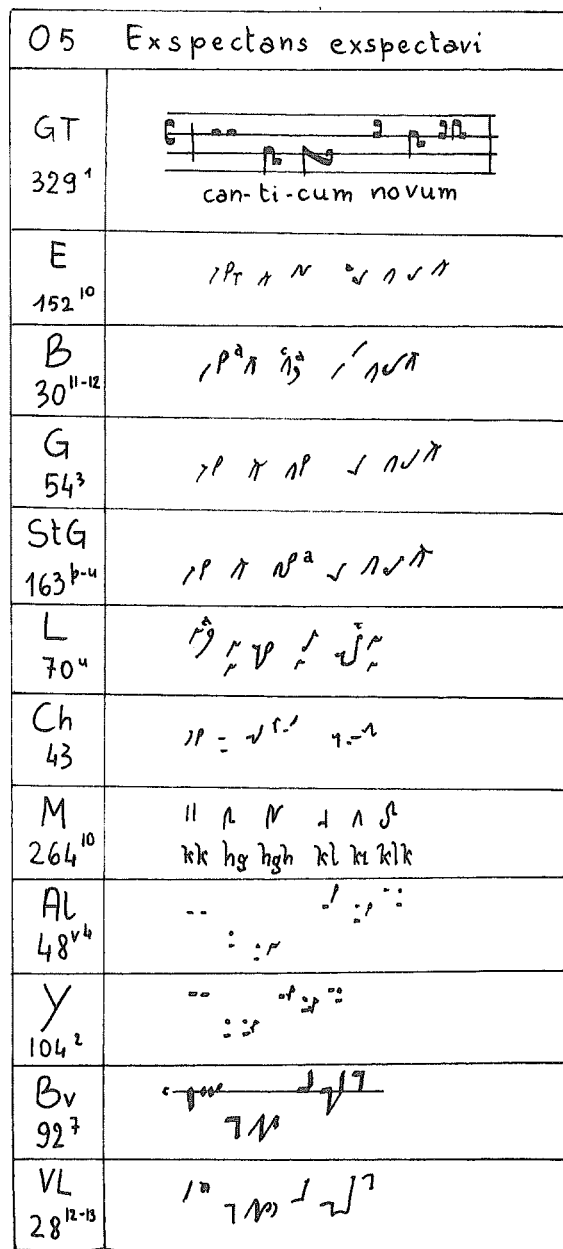 O5 Exspectans exspectavi
GT
329¹
can-ti-cum novum
E
152¹⁰
B
30¹¹⁻¹²
a
c
a
G
54³
StG
163ᵖ⁻ᵘ
a
L
70ᵘ
Ch
43
M
264¹⁰
kk hg hgh kl kι klk
Al
48ᵛ⁴
Y
104²
Bv
92⁷
c
VL
28¹²⁻¹³